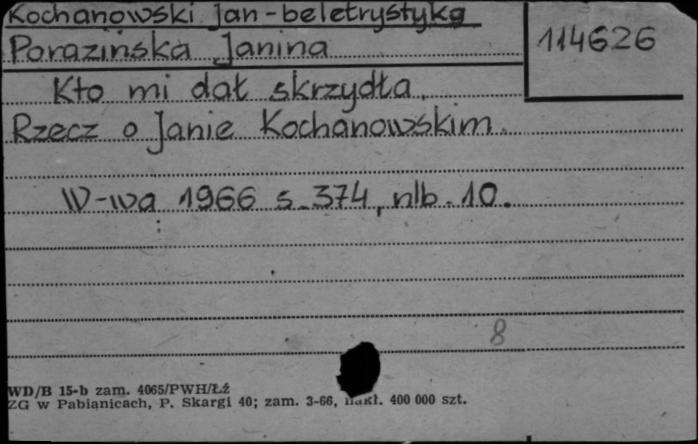 Kochanowski Jan - beletrystyka
Porazińska Janina
114626
Kto mi dał skrzydła.
Rzecz o Janie Kochanowskim.
W-wa 1966 s. 374, nlb. 10.
8
WD/B 15-b zam. 4065/PWH/Łź
ZG w Pabianicach, P. Skargi 40; zam. 3-66, nakł. 400 000 szt.